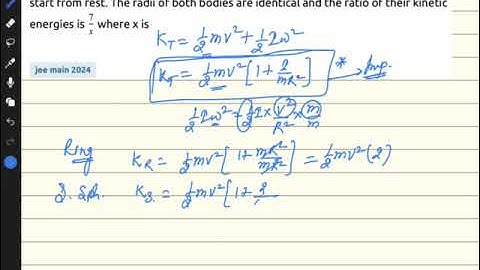 start from rest. The radii of both bodies are identical and the ratio of their kinetic
energies is 7/x where x is
K_T = 1/2 mv² + 1/2 Iω²
jee main 2024
K_T = 1/2 mv² [1 + I/mR²] * → Imp.
1/2 Iω² = 1/2 I × v²/R² × m/m
Ring K_R = 1/2 mv² [1 + mR²/mR²] = 1/2 mv² (2)
S. Sph. K_S. = 1/2 mv² [1 + 2